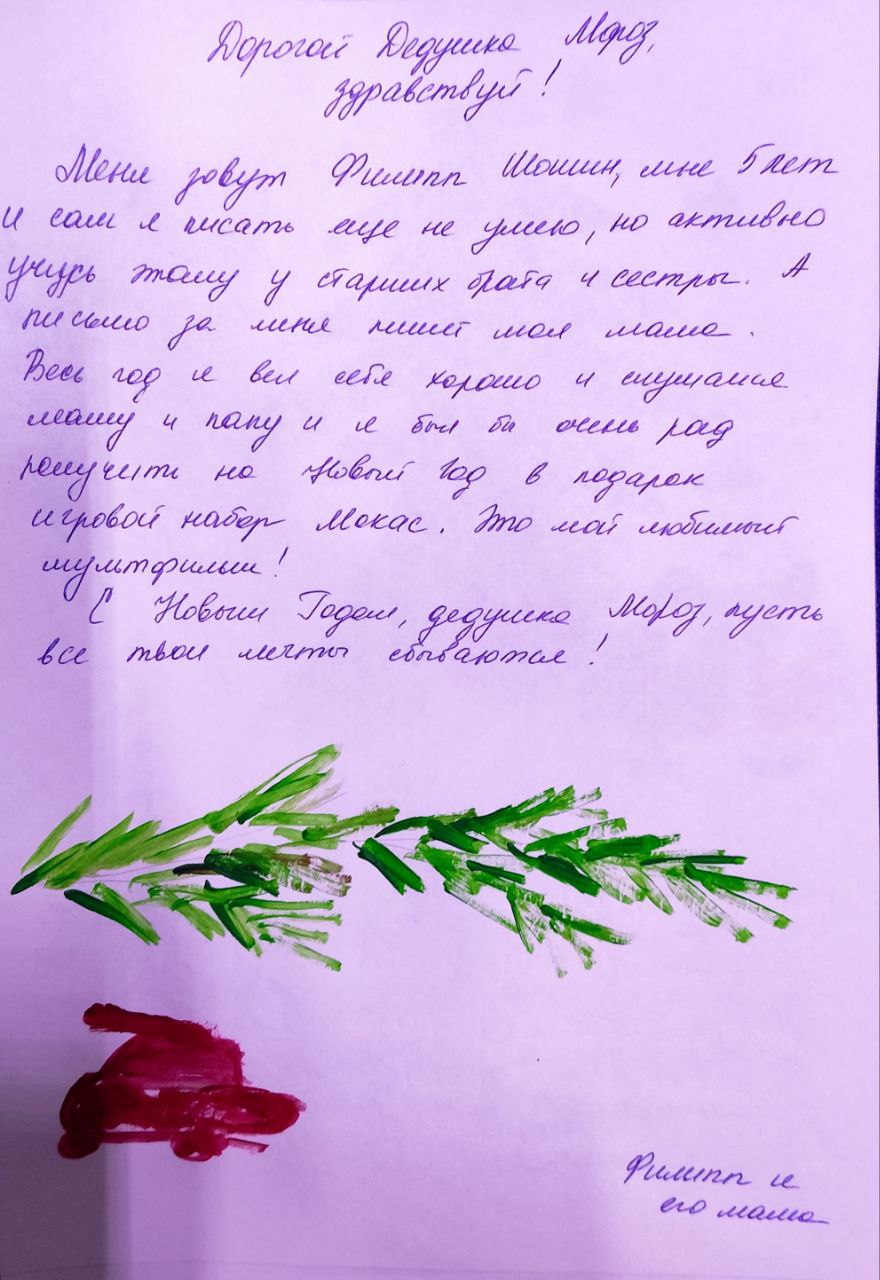 Дорогой Дедушка Мороз,
здравствуй!
Меня зовут Филипп Шошин, мне 5 лет
и сам я писать еще не умею, но активно
учусь этому у старших брата и сестры. А
письмо за меня пишет моя мама.
Весь год я вел себя хорошо и слушался
маму и папу и я был бы очень рад
получить на Новый Год в подарок
игровой набор Мокас. Это мой любимый
мультфильм!
С Новым Годом, дедушка Мороз, пусть
все твои мечты сбываются!
Филипп и
его мама